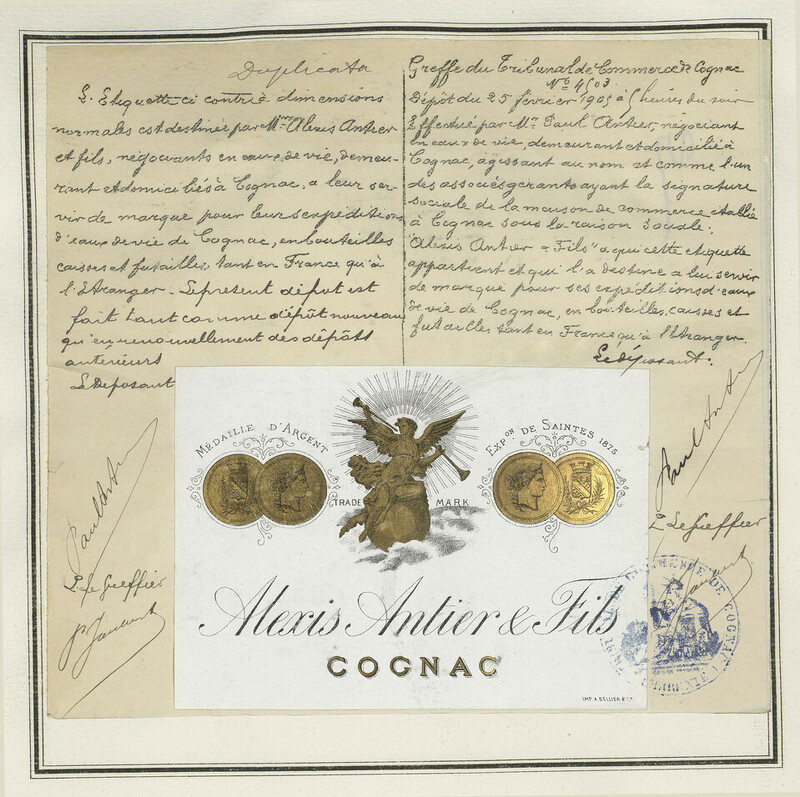 Duplicata
L'Etiquette ci contre dimensions
normales est destinée par Mrs Alexis Antier
et fils, négociants en eaux de vie, demeu-
rant et domiciliés à Cognac, a leur ser-
vir de marque pour leurs expéditions
d'eaux de vie de Cognac, en bouteilles
caisses et futailles, tant en France qu'à
l'Etranger. Le present dépôt est
fait tant comme dépôt nouveau
qu'en renouvellement des dépôts
antérieurs
Le Deposant
Paul Antier
P. Le Greffier
Greffe du Tribunal de Commerce de Cognac
No 4503
Dépôt du 25 février 1905 à 5 heures du soir
Effectué par Mr Paul Antier, négociant
en eaux de vie, demeurant et domicilié à
Cognac, agissant au nom et comme l'un
des associés gerants ayant la signature
sociale de la maison de commerce établie
à Cognac sous la raison sociale:
"Alexis Antier & Fils" a qui cette etiquette
appartient et qui l'a destine a lui servir
de marque pour ses expéditions d'eaux
de vie de Cognac, en bouteilles, caisses et
futailles tant en France qu'à l'étranger.
Le déposant:
Paul Antier
P. Le Greffier
MÉDAILLE D'ARGENT
EXPON DE SAINTES 1875
TRADE MARK
Alexis Antier & Fils
COGNAC
IMP. A. BELLIER & Cie
COMMERCE DE COGNAC